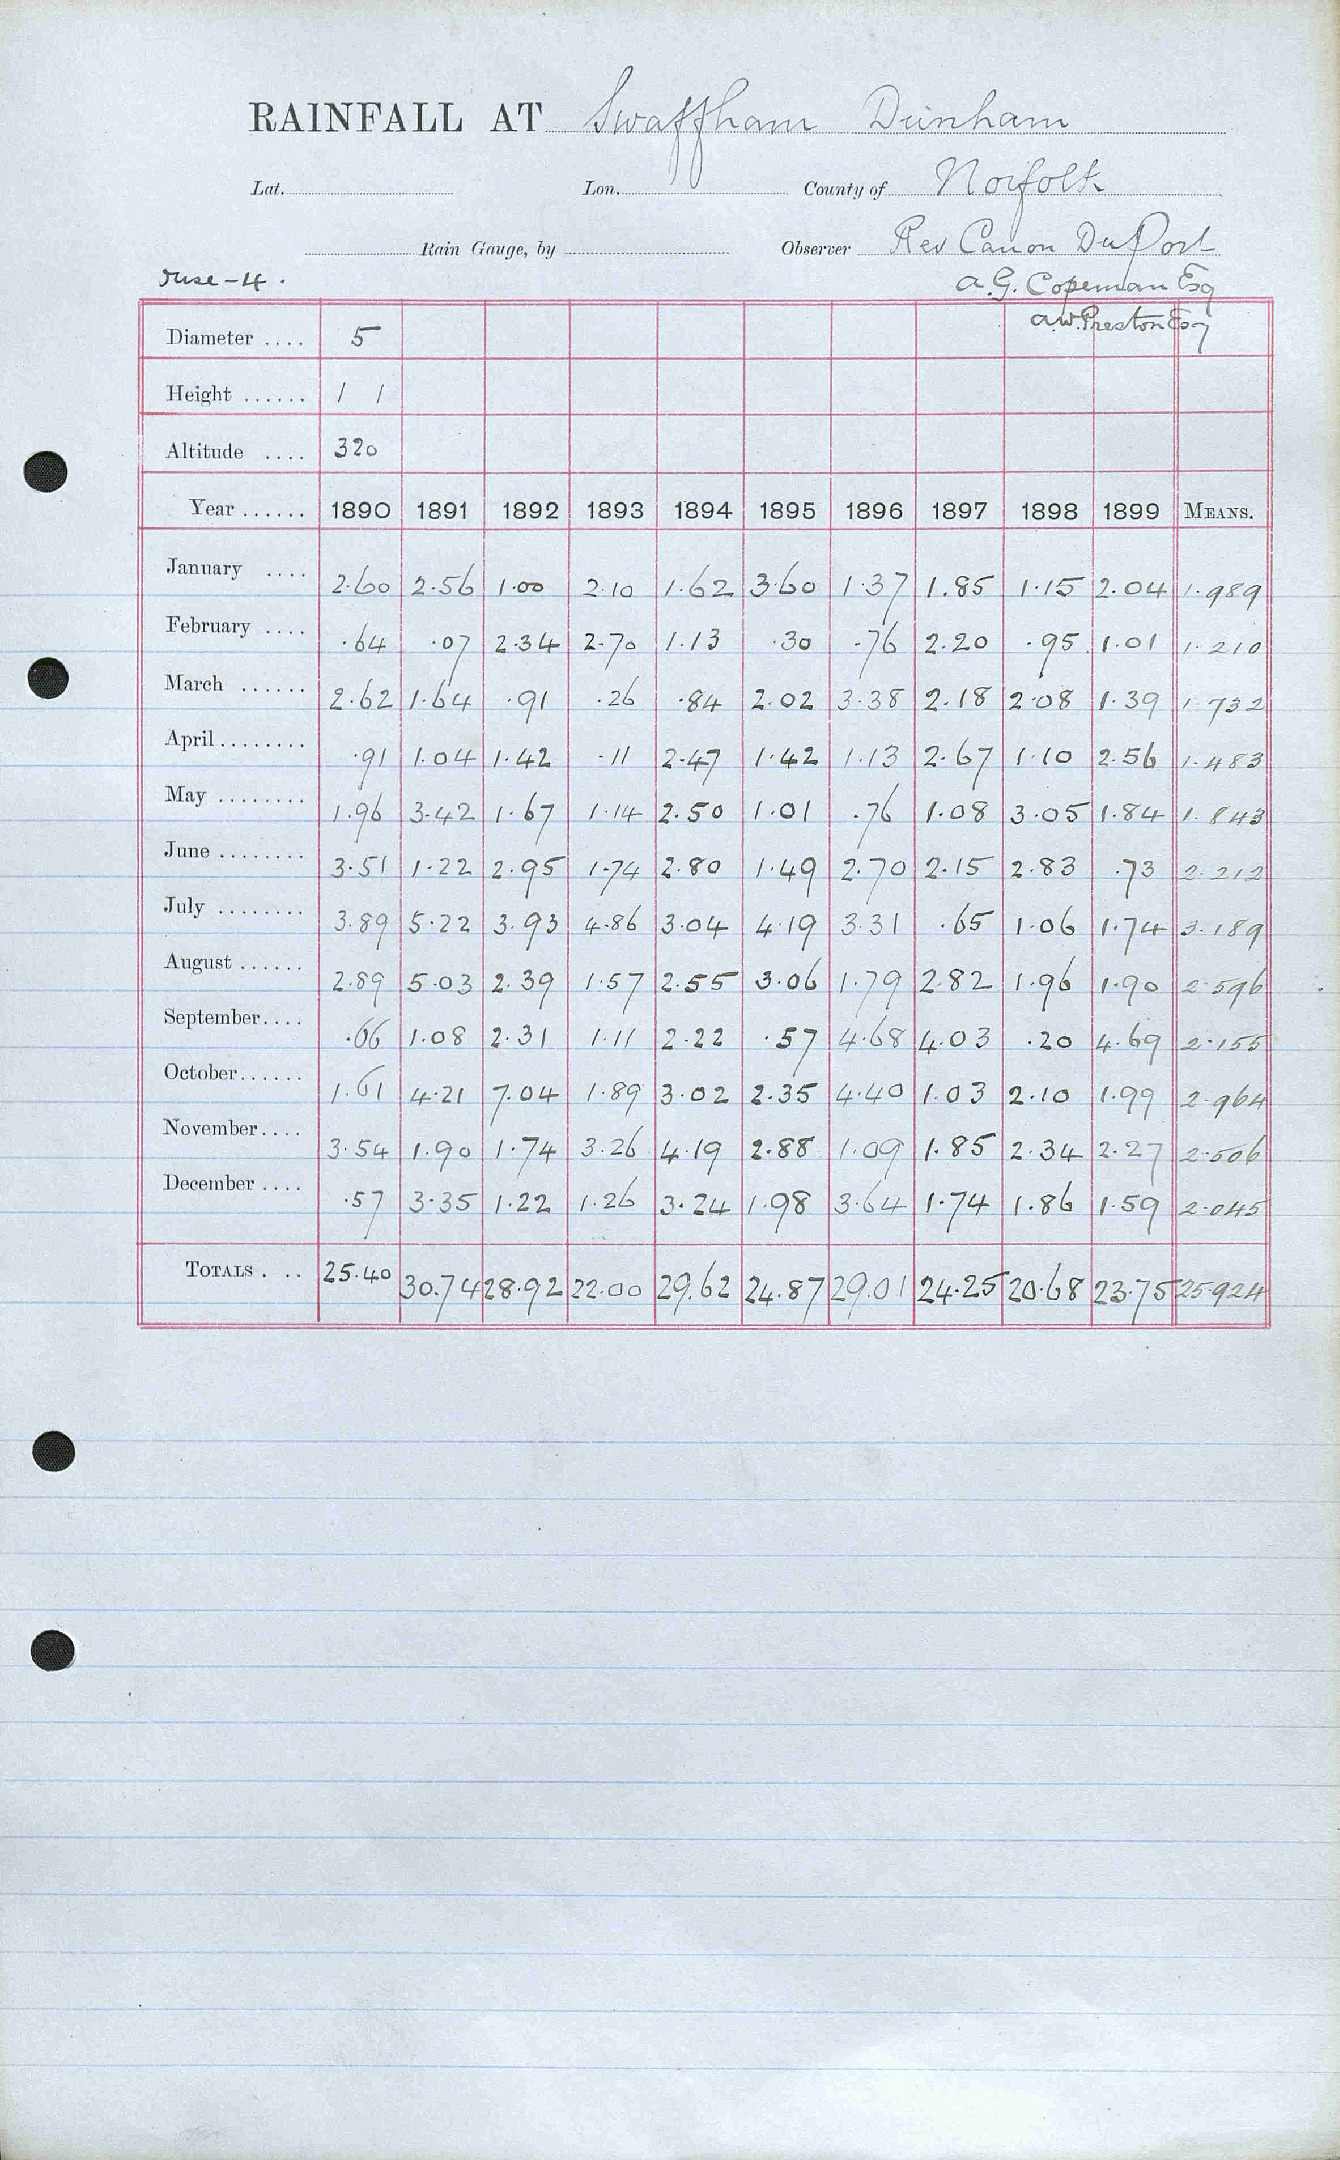 RAINFALL AT Swaffham Dunham
Lat. Lon. County of Norfolk
Rain Gauge, by Observer Rev Canon Du Port
A.G. Copeman Esq
A.W. Preston Esq
Diameter .... 5
Height ...... 1 1
Altitude .... 320
Year ...... 1890 1891 1892 1893 1894 1895 1896 1897 1898 1899 MEANS.
January .... 2.60 2.56 1.00 2.10 1.62 3.60 1.37 1.85 1.15 2.04 1.989
February .... .64 .07 2.34 2.70 1.13 .30 .76 2.20 .95 1.01 1.210
March ...... 2.62 1.64 .91 .26 .84 2.02 3.38 2.18 2.08 1.39 1.732
April ........ .91 1.04 1.42 .11 2.47 1.42 1.13 2.67 1.10 2.56 1.483
May ........ 1.96 3.42 1.67 1.14 2.50 1.01 .76 1.08 3.05 1.84 1.843
June ........ 3.51 1.22 2.95 1.74 2.80 1.49 2.70 2.15 2.83 .73 2.212
July ........ 3.89 5.22 3.93 4.86 3.04 4.19 3.31 .65 1.06 1.74 3.189
August ...... 2.89 5.03 2.39 1.57 2.55 3.06 1.79 2.82 1.96 1.90 2.596
September .... .66 1.08 2.31 1.11 2.22 .57 4.68 4.03 .20 4.69 2.155
October ...... 1.61 4.21 7.04 1.89 3.02 2.35 4.40 1.03 2.10 1.99 2.964
November .... 3.54 1.90 1.74 3.26 4.19 2.88 1.09 1.85 2.34 2.27 2.506
December .... .57 3.35 1.22 1.26 3.24 1.98 3.64 1.74 1.86 1.59 2.045
TOTALS .... 25.40 30.74 28.92 22.00 29.62 24.87 29.01 24.25 20.68 23.75 25.924